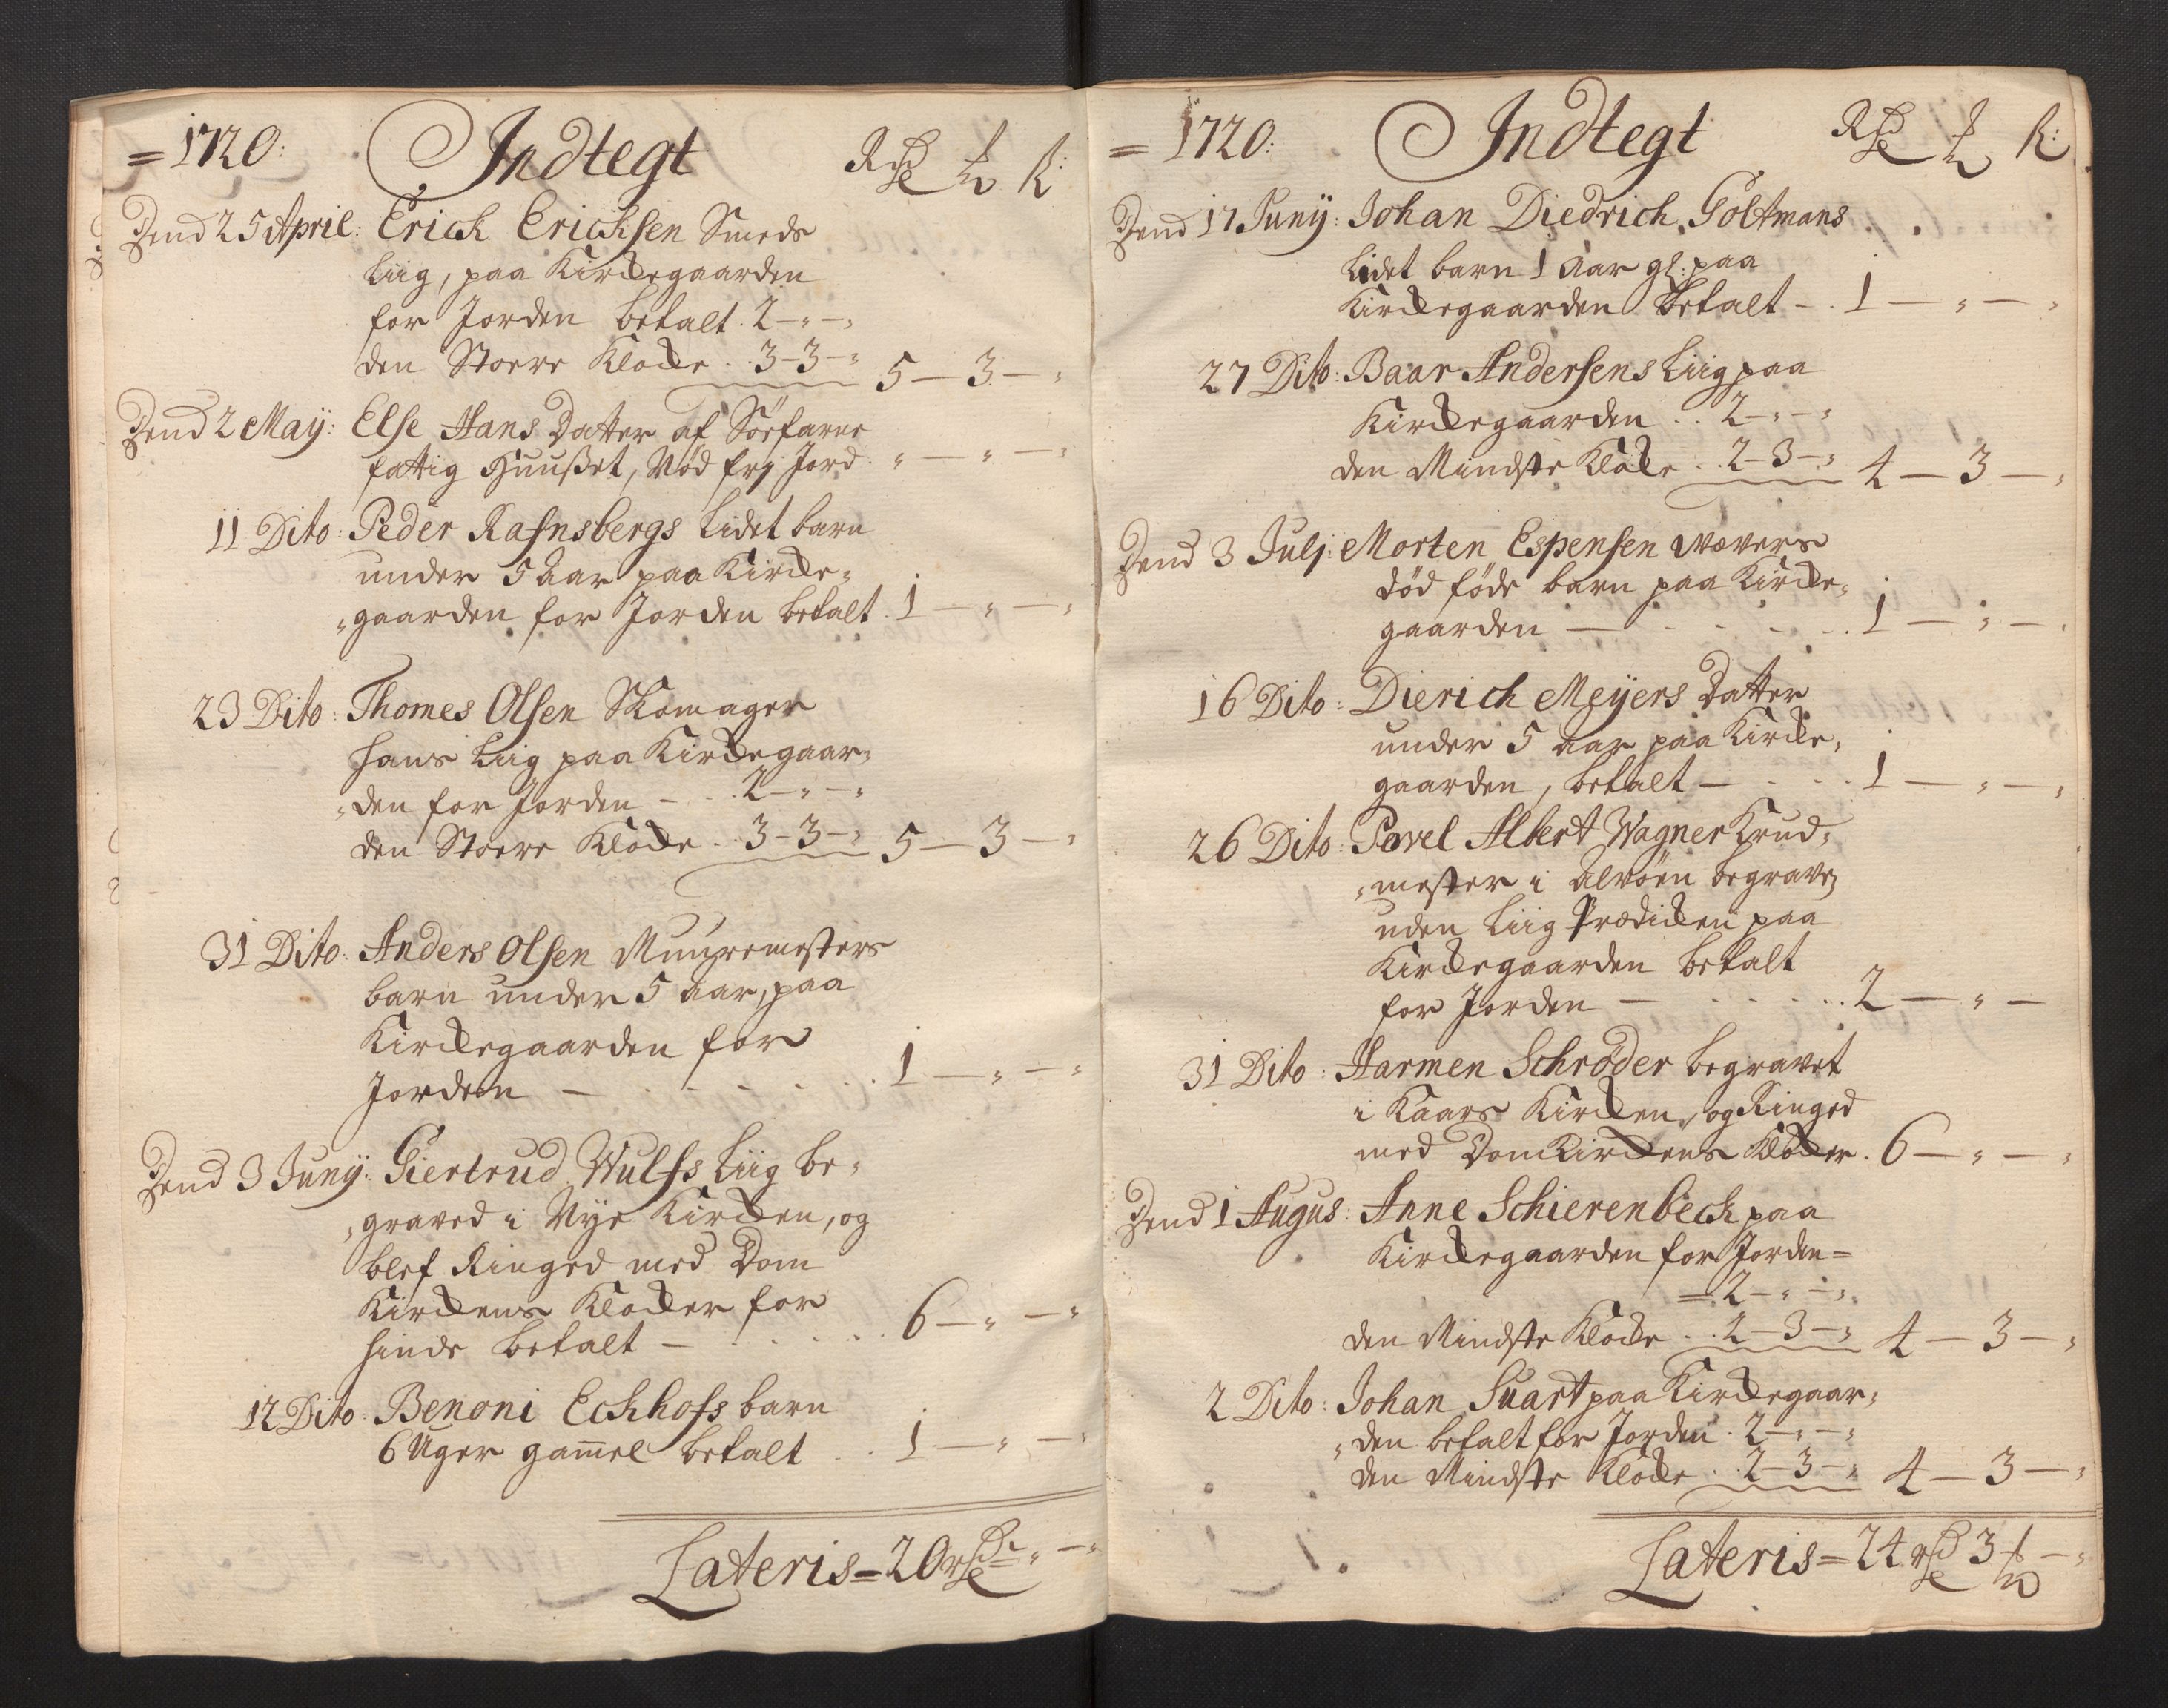 = 1720: Indtegt Rdr ℔ ß:
Dend 25 April: Erich Erichsen Smeds
Liig, paa Kirckegaarden
for Jorden betalt. 2 - " - "
den Stoere Klocke . . 3 - 3 - " 5 — 3 — "
Dend 2 Maij: Else Hans Datter af Söefarne
fattig Huußet, Nød frj Jord. " — " — "
11 Dito: Peder Rafnsbergs Lidet barn
under 5 Aar paa Kircke=
"gaarden for Jorden betalt . 1 — " — "
23 Dito: Thomes Olsen Skomager
hans Liig paa Kirckegaar=
"den for Jorden - . . 2 - " - "
den Stoere Klocke . . 3 - 3 - " 5 — 3 — "
31 Dito: Anders Olsen Muuremesters
barn under 5 aar, paa
Kirckegaarden for
Jorden — . . . . . 1 — " — "
Dend 3 Junij: Giertrud Wulfs Liig be=
"graved i Nye Kircken, og
blef Ringed med Dom
Kirckens Klocker for
hinde betalt — . . . . 6 — " — "
12 Dito: Benoni Eckhofs barn
6 Uger gam̄el betalt . 1 — " — "
Lateris = 20 rdr " — "
= 1720: Indtegt Rdr ℔ ß:
Dend 17 Junij: Johan Diedrich Goltmans
Lidet barn 1 Aar gl: paa
Kirckegaarden betalt - . 1 — " — "
27 Dito: Baar Andersens Liig paa
Kirckegaarden . . 2 - " - "
den Mindste Klocke . . 2 - 3 - " 4 — 3 — "
Dend 3 Julj: Morten Espensen Wævers
død føde barn paa Kircke=
gaarden — . . . . . 1 — " — "
16 Dito: Dierich Meijers Datter
under 5 aar paa Kircke=
gaarden, betalt — . . . 1 — " — "
26 Dito: Povel Albert Wagner Krud=
"mester i Alvöen begravez
uden Liig Prædicken paa
Kirckegaarden betalt
for Jorden — . . . . . 2 — " —
31 Dito: Harmen Schrøder begravet
i Kaars Kircken, og Ringed
med DomKirckens Klocker . 6 — " — "
Dend 1 Augus: Anne Schierenbeck paa
Kirckegaarden for Jorden =
= 2 - " - "
den Mindste Klocke . . 2 - 3 - " 4 — 3 — "
2 Dito: Johan Suart paa Kirckegaar=
"den betalt for Jorden . 2 - " - "
den Mindste Klocke . . 2 - 3 - " 4 — 3 — "
Lateris = 24 rdr 3 ℔ — "